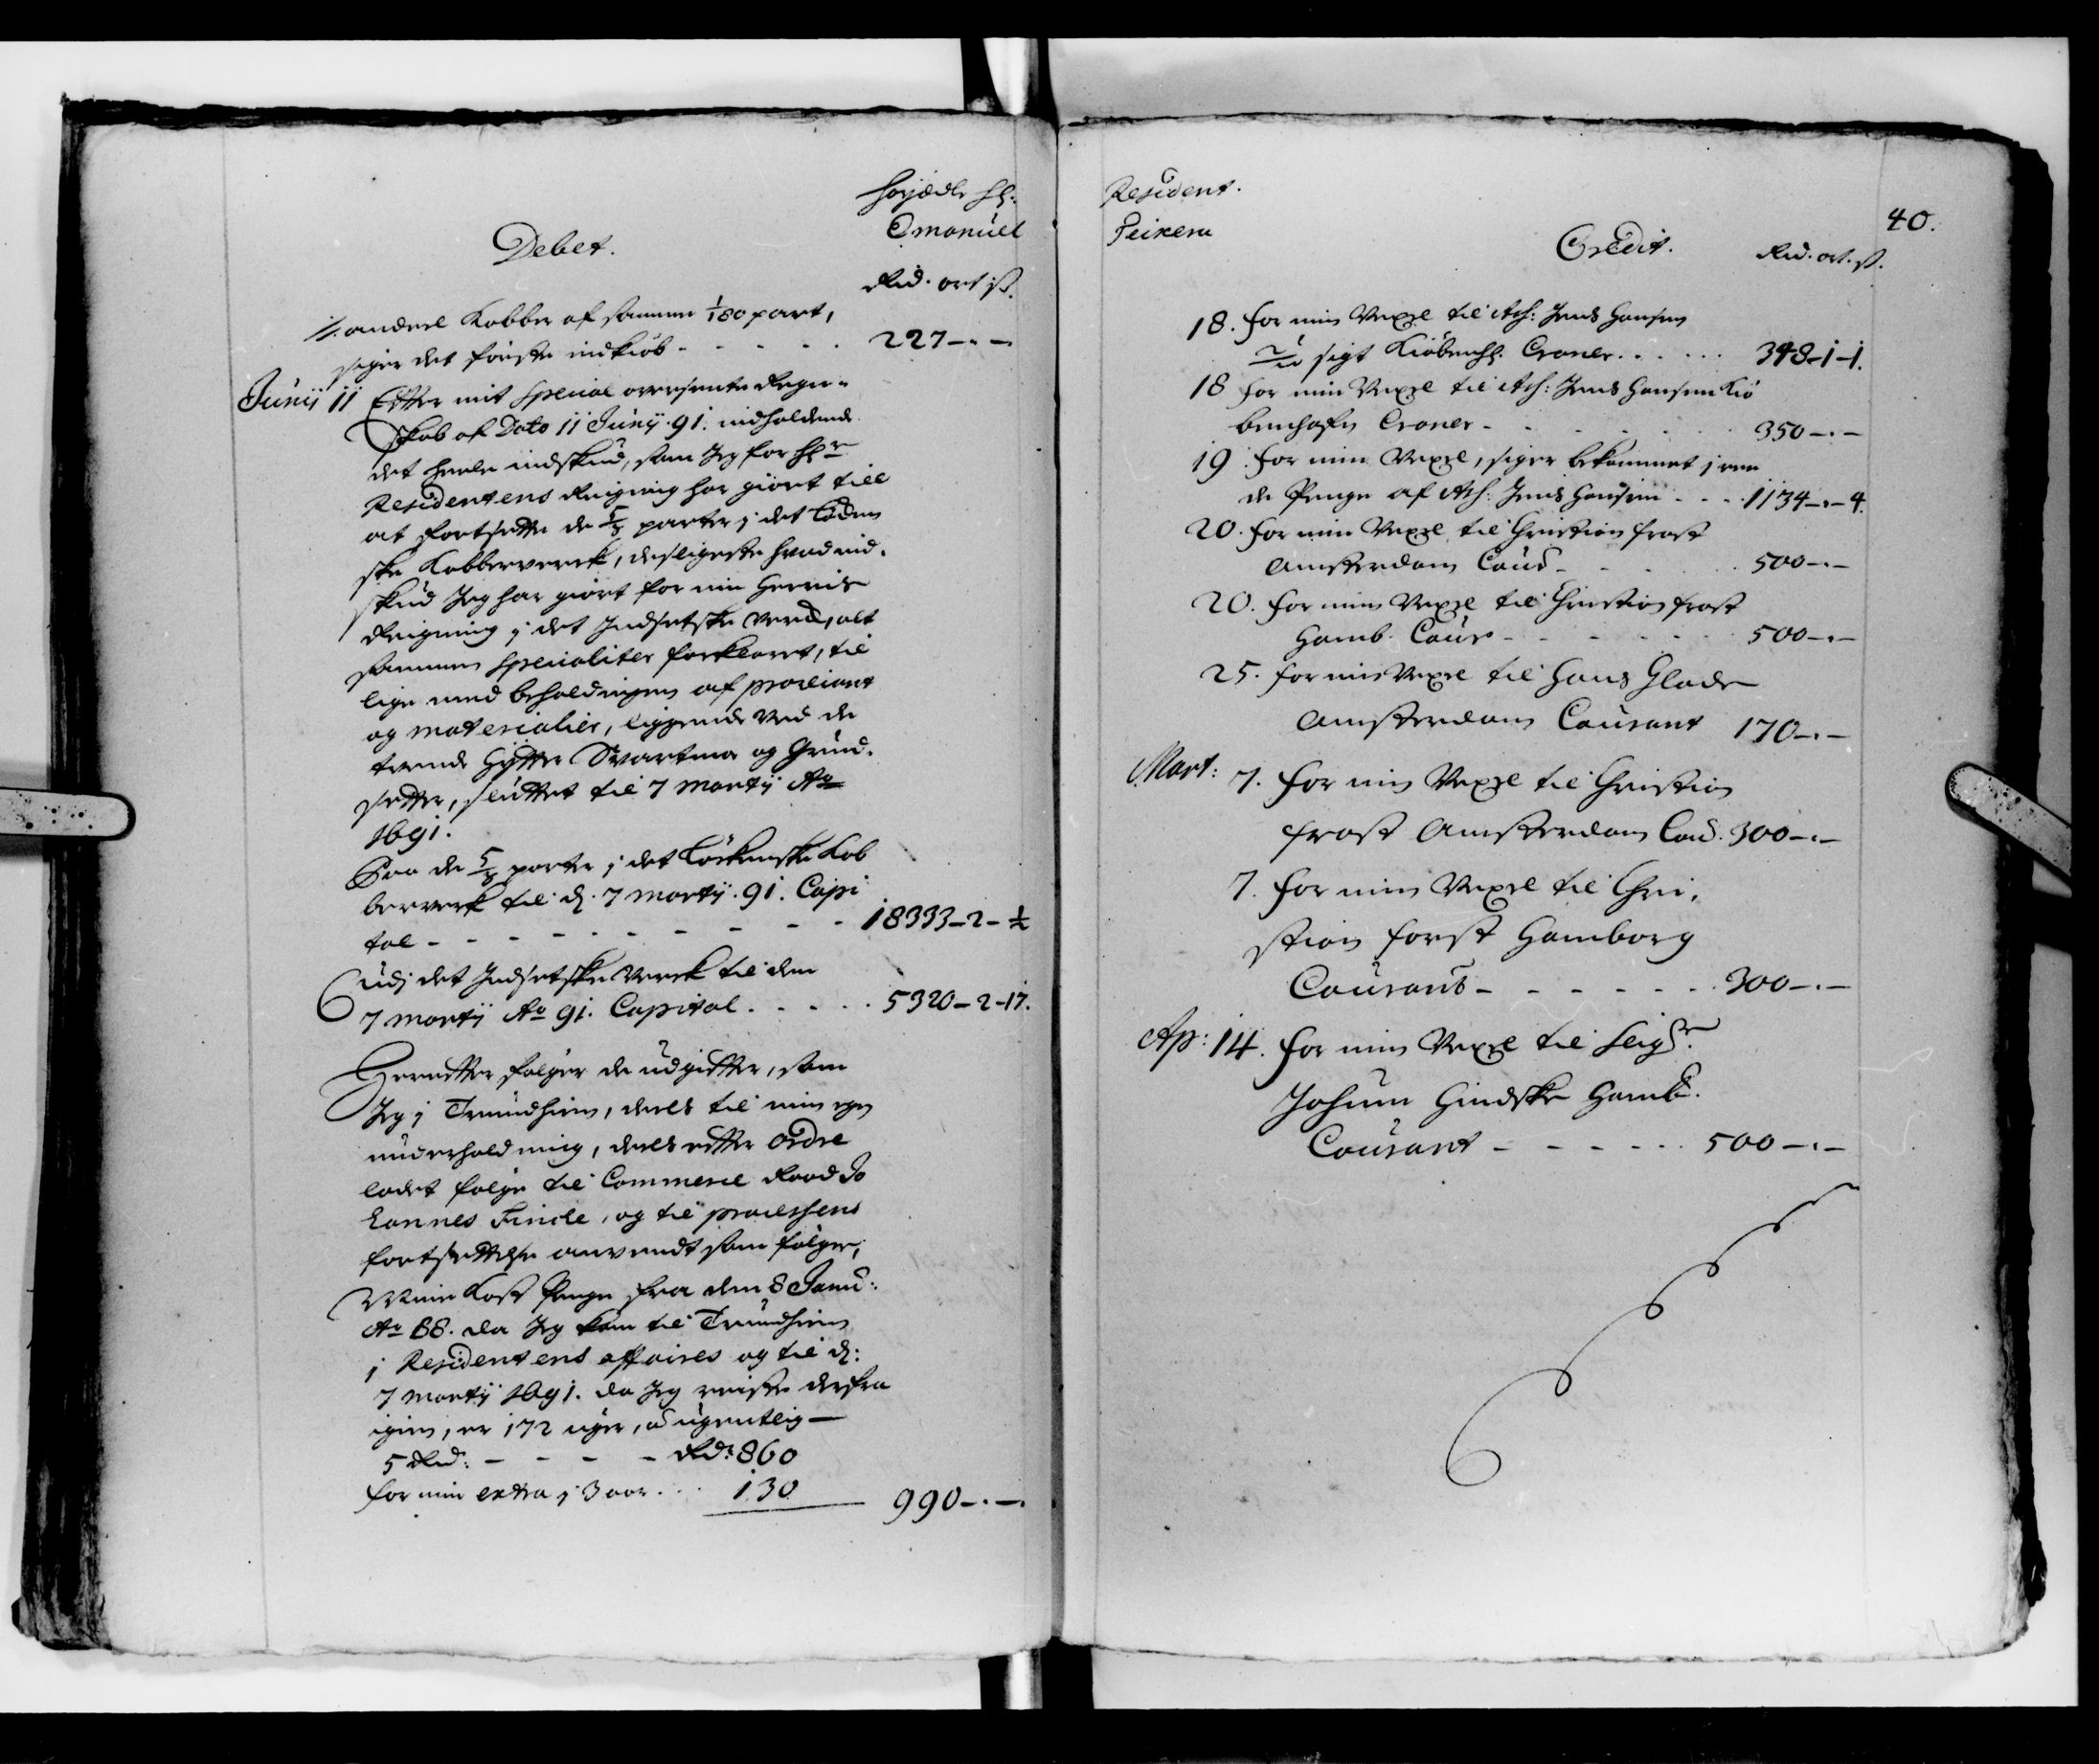 Høyædle Hr:
Emanuel
Debet.
Rd. ort ß.
andeel Kobber af samme 1/80 part,
siger det første indkiøb - - - - - 227 - . -
Junij 11 Efter mit Special oversente Regn-
skab af Dato 11 Junij 91. indholdende
det heele indskud, som Jeg for Hr
Residentens Reigning har giort till
at fortsette de 5/8 parter j det Løcken
ske Kobberverck, desligeste hvad ind-
skud Jeg har giort for min Herris
Reigning j det Indsetske Verck, alt
sammen specialiter forklaret, til
lige med beholdningen af proviant
og materialier, liggende ved de
tvende Hÿtter Svartmo og Grud-
setter, sluttet til 7 Martij Ao
1691.
Saa de 5/8 parter j det Løckenske Kob
berverk til d. 7 Martij 91. Capi
tal - - - - - - - 18333 - 2 - 1/2
udj det Indsetske Verck til den
7 Martij Ao 91. Capital . . . . 5320 - 2 - 17.
Herefter følger de udgifter, som
Jeg j Trundhiem, deels til min egen
underholdning, deels efter Ordre
ladet følge til Commerce Raad Jo
hannes Fincke, og til processens
fortsettelse anvendt som følger,
Mine Kost Penge fra den 8 Janu:
Ao 88. da Jeg kom til Trundhiem
j Residentens affaires og til d:
7 Martij 1691. da Jeg reiste derfra
igien, er 172 uger, a ugentlig -
5 Rd: - - - - Rd: 860
for min extra j 3 aar . . . 130
990 - . - .
Resident.
Teixera
40.
Credit.
Rd. ort. ß.
18. for min Vexel til Ass: Jens Hansen
sigt Kiøbenh. Croner . . . . . 348 - 1 - 1.
18 for min Vexel til Ass: Jens Hansen Kiø
benhafn Croner - - - - 350 - . -
19. for min Vexel, siger bekommet j ree
de Penge af Ass: Jens Hansen - - - 1134 - . - 4.
20. for min Vexel til Christian Frost
Amsterdam Cour - - - - 500 - . -
20. for min Vexel til Christian Frost
Hamb. Cour - - - - - 500 - . -
25. for min Vexel til Hans Glade
Amsterdam Courant 170 - . -
Mart: 7. for min Vexel til Christian
Frost Amsterdam Cou. 300 - . -
7. for min Vexel til Chri-
stian Forst Hamborg
Courant - - - - - - 300 - . -
Ap: 14. for min Vexel til Seigr.
Jochum Hindske Hamb.
Courant - - - - - - 500 - . -